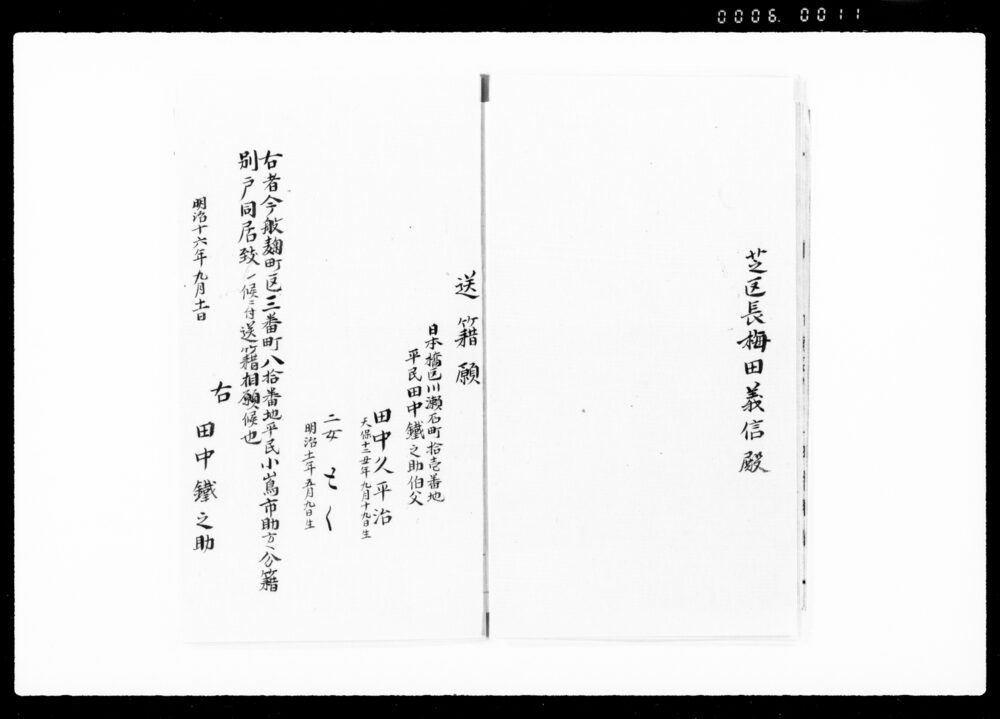 0006. 0011
芝区長梅田義信殿
送籍願
日本橋区川瀬石町拾壱番地
平民田中鐵之助伯父
田中久平治
天保十二丑年九月十九日生
二女 とく
明治十一年五月九日生
右者今般麹町区三番町八拾番地平民小嶌市助方へ分籍
別戸同居致候ニ付送籍相願候也
明治十六年九月十一日
右
田中鐵之助